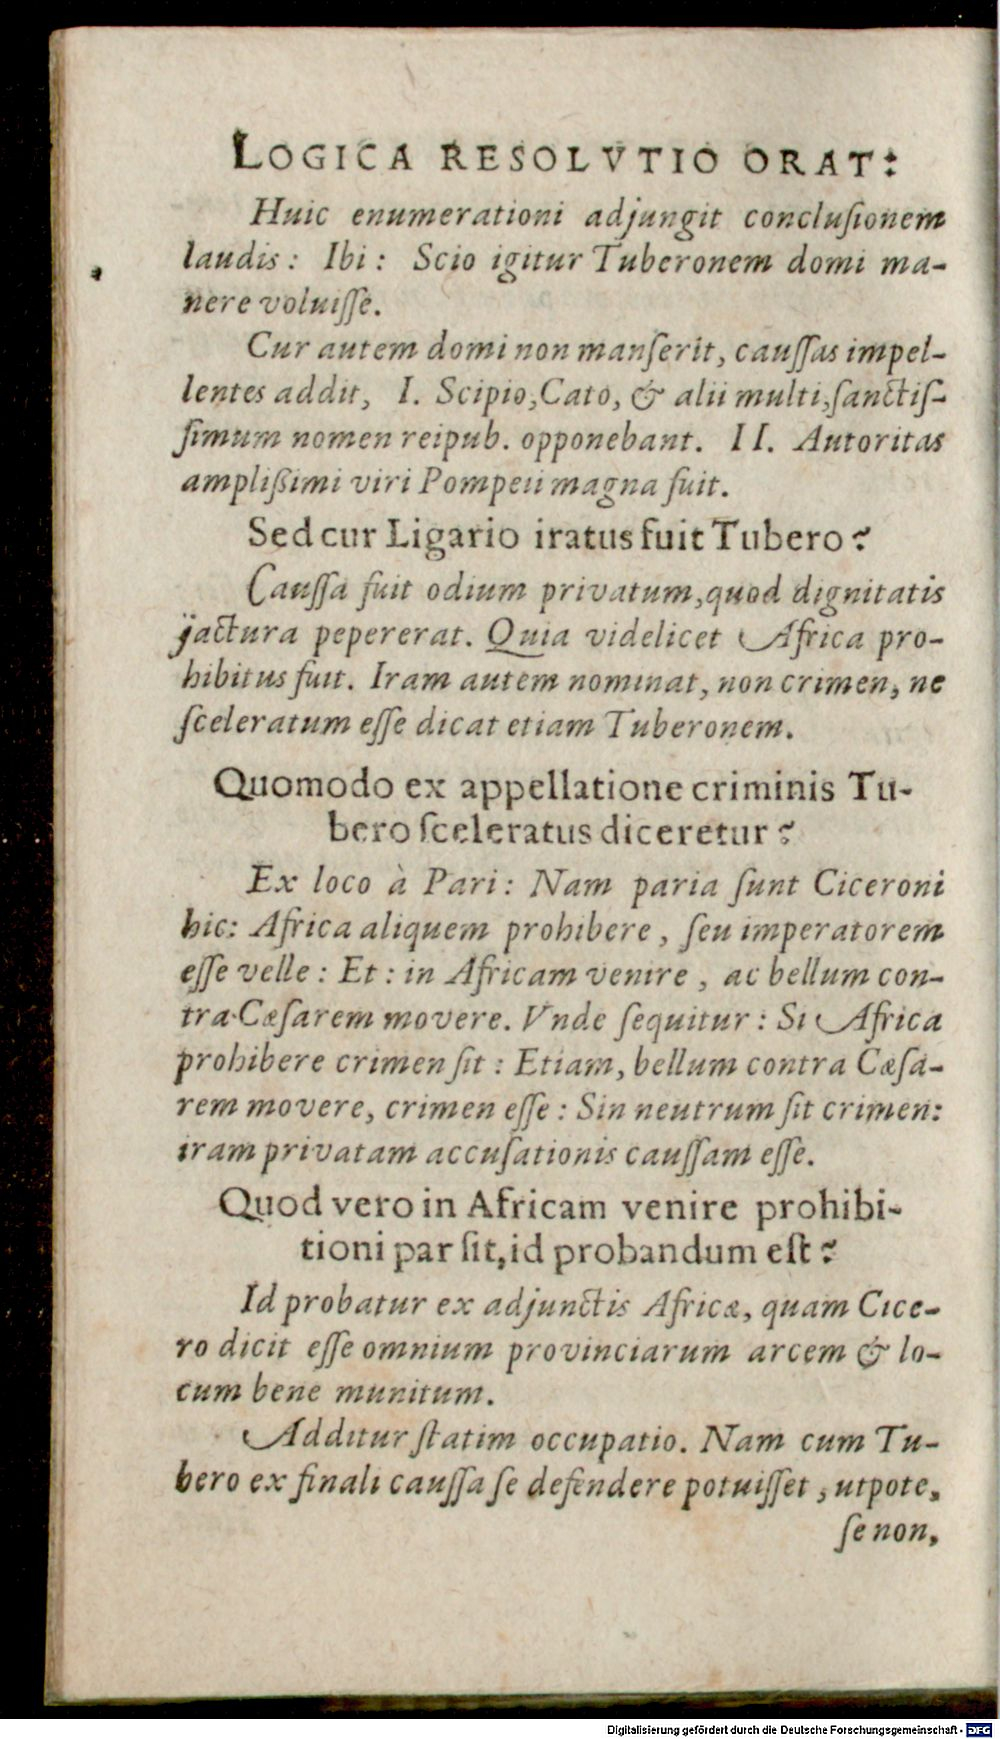 LOGICA RESOLVTIO ORAT:
Huic enumerationi adjungit concluſionem
laudis: Ibi: Scio igitur Tuberonem domi ma-
nere voluiſſe.
Cur autem domi non manſerit, cauſſas impel-
lentes addit, I. Scipio, Cato, & alii multi, ſanctiſ-
ſimum nomen reipub. opponebant. II. Autoritas
ampliſſimi viri Pompeii magna fuit.
Sed cur Ligario iratus fuit Tubero?
Cauſſa fuit odium privatum, quod dignitatis
jactura pepererat. Quia videlicet Africa pro-
hibitus fuit. Iram autem nominat, non crimen, ne
ſceleratum eſſe dicat etiam Tuberonem.
Quomodo ex appellatione criminis Tu-
bero ſceleratus diceretur?
Ex loco à Pari: Nam paria ſunt Ciceroni
hic: Africa aliquem prohibere, ſeu imperatorem
eſſe velle: Et: in Africam venire, ac bellum con-
tra Cæſarem movere. Vnde ſequitur: Si Africa
prohibere crimen ſit: Etiam, bellum contra Cæſa-
rem movere, crimen eſſe: Sin neutrum ſit crimen:
iram privatam accuſationis cauſſam eſſe.
Quod vero in Africam venire prohibi-
tioni par ſit, id probandum eſt?
Id probatur ex adjunctis Africæ, quam Cice-
ro dicit eſſe omnium provinciarum arcem & lo-
cum bene munitum.
Additur ſtatim occupatio. Nam cum Tu-
bero ex finali cauſſa ſe defendere potuiſſet, utpote,
ſe non,
Digitalisierung gefördert durch die Deutsche Forschungsgemeinschaft - DFG